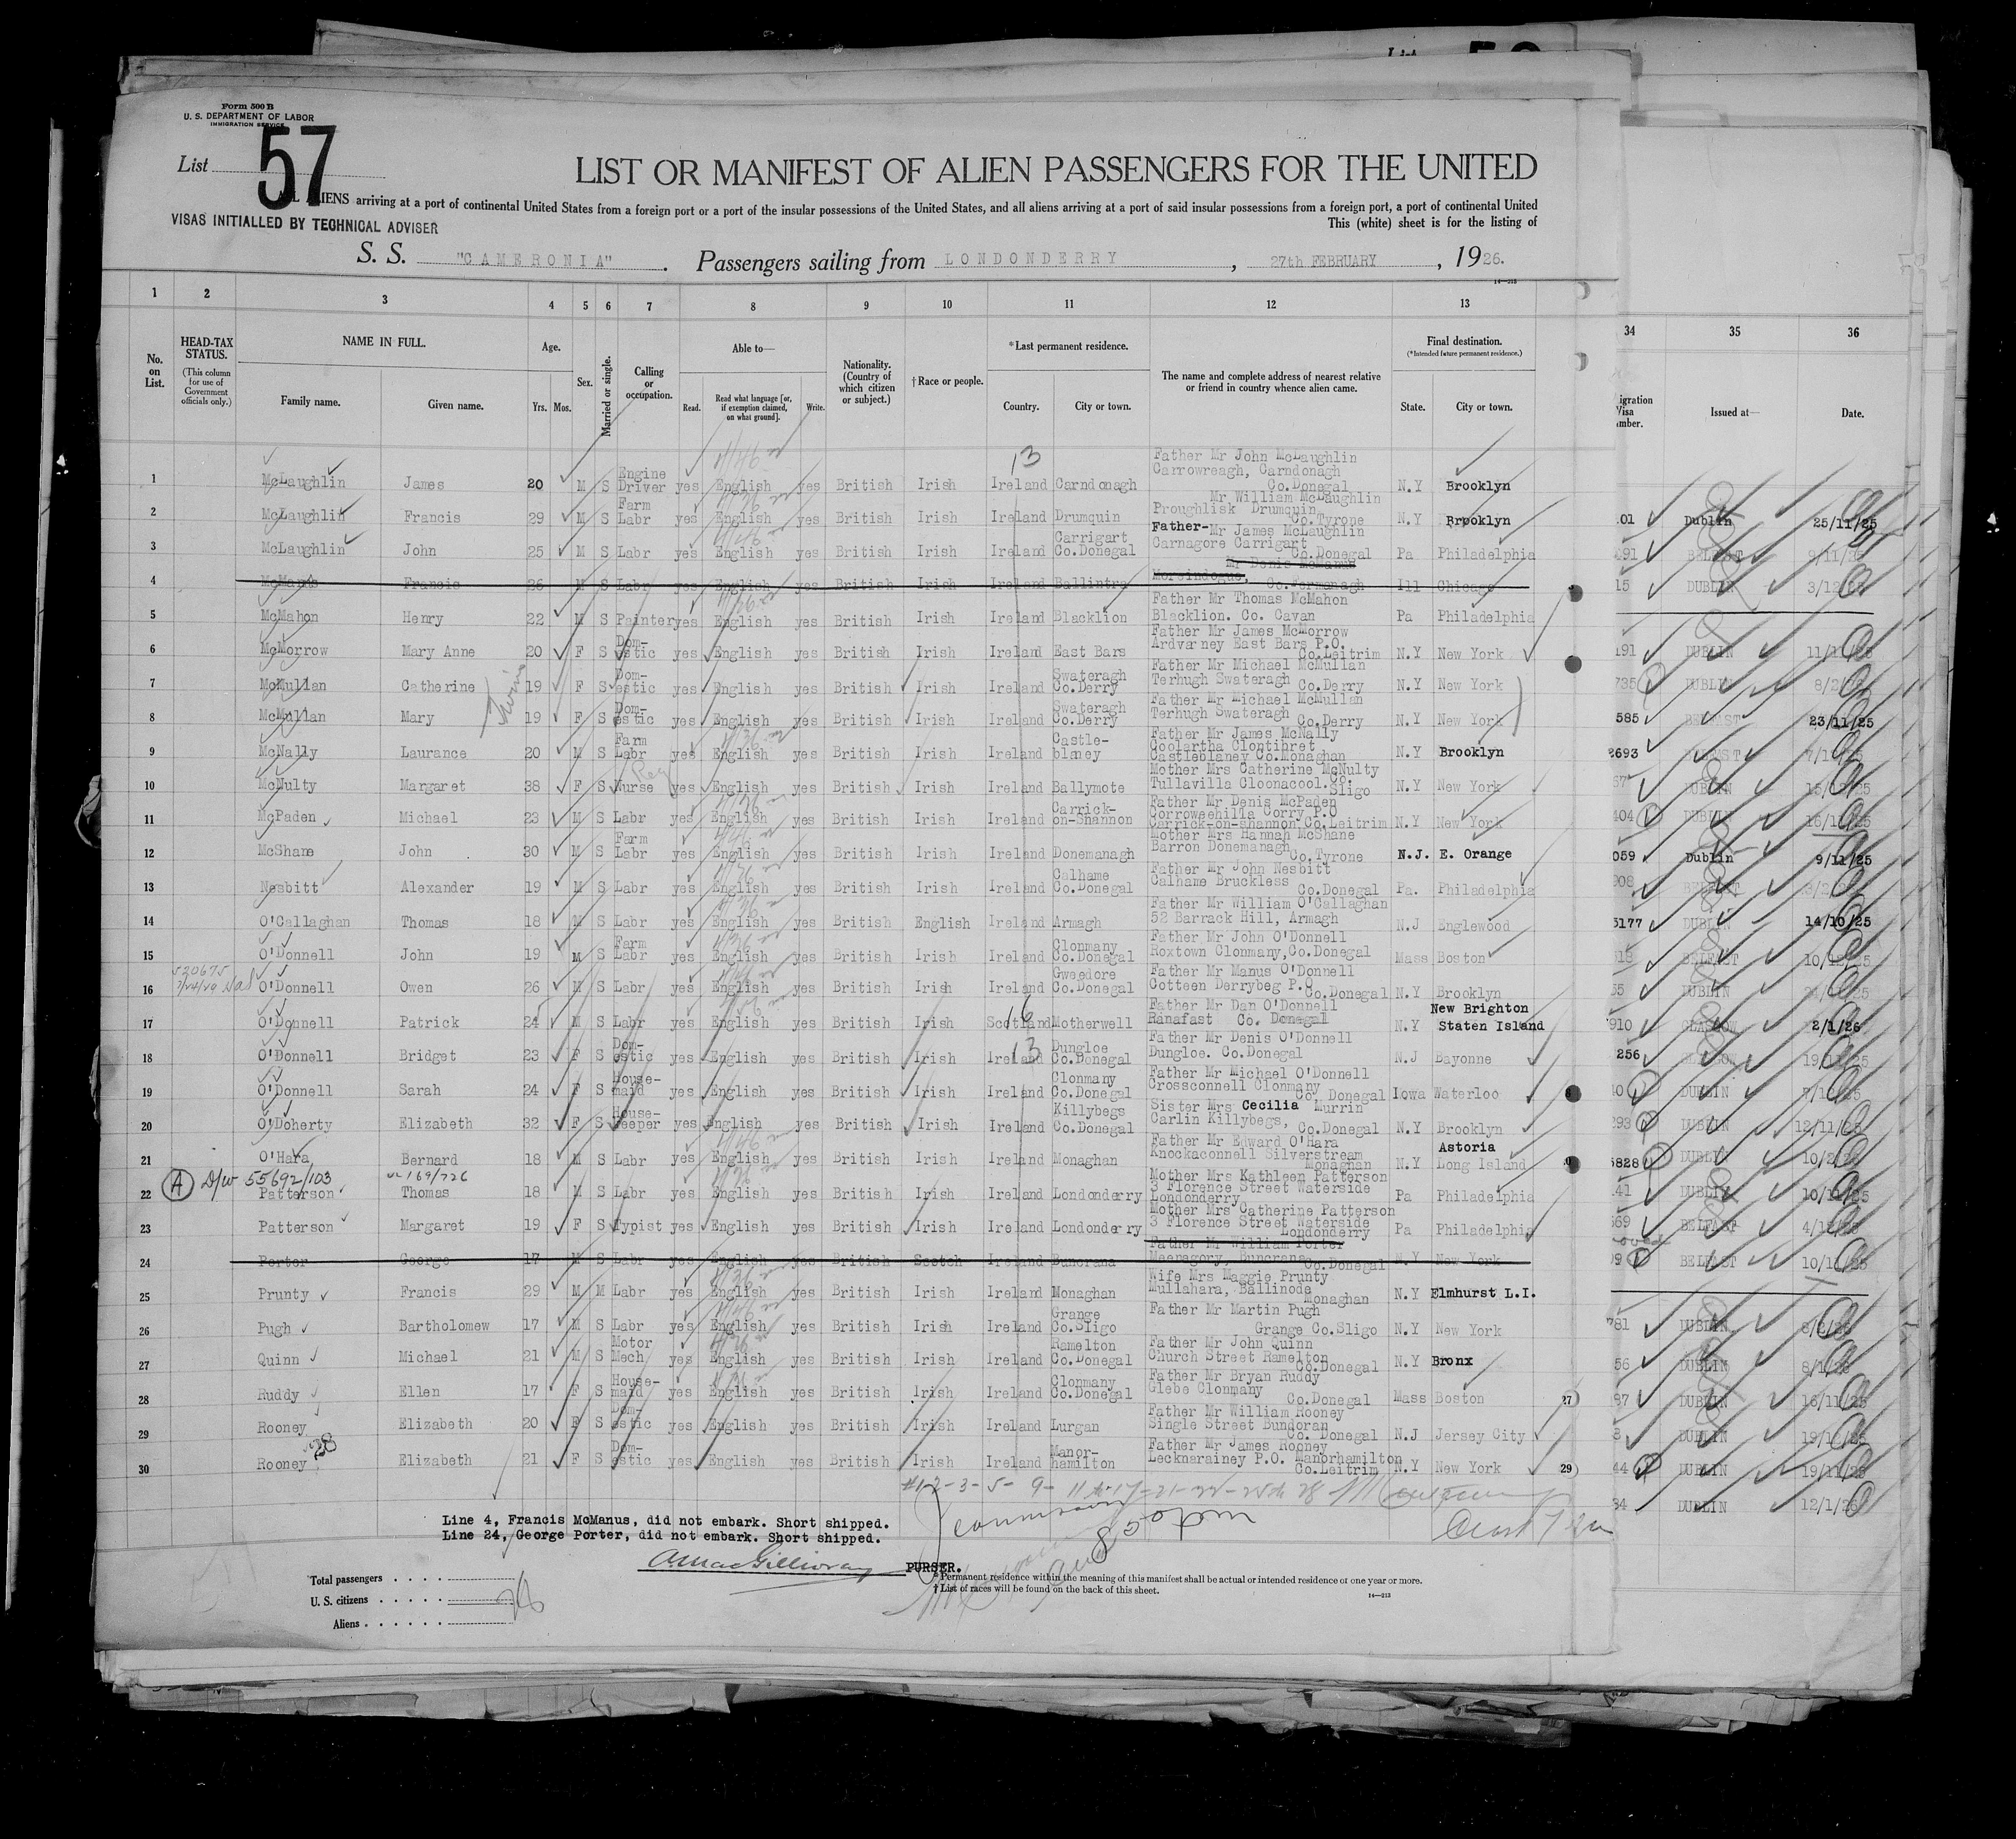 Form 500 B
U. S. DEPARTMENT OF LABOR
IMMIGRATION SERVICE
List 57
LIST OR MANIFEST OF ALIEN PASSENGERS FOR THE UNITED
ALL ALIENS arriving at a port of continental United States from a foreign port or a port of the insular possessions of the United States, and all aliens arriving at a port of said insular possessions from a foreign port, a port of continental United
VISAS INITIALLED BY TECHNICAL ADVISER
This (white) sheet is for the listing of
S. S. "CAMERONIA" . Passengers sailing from LONDONDERRY , 27th FEBRUARY , 1926.
1 2 3 4 5 6 7 8 9 10 11 12 13 34 35 36
No. on List.
HEAD-TAX STATUS.
(This column for use of Government officials only.)
NAME IN FULL.
Family name. Given name.
Age.
Yrs. Mos.
Sex.
Married or single.
Calling or occupation.
Able to—
Read. Read what language [or, if exemption claimed, on what ground]. Write.
Nationality. (Country of which citizen or subject.)
† Race or people.
*Last permanent residence.
Country. City or town.
The name and complete address of nearest relative or friend in country whence alien came.
Final destination.
(*Intended future permanent residence.)
State. City or town.
Issued at— Date.
1 McLaughlin James 20 M S Engine Driver yes English yes British Irish Ireland Carndonagh Father Mr John McLaughlin Carrowreagh, Carndonagh Co.Donegal N.Y Brooklyn
2 McLaughlin Francis 29 M S Farm Labr yes English yes British Irish Ireland Drumquin Mr William McLaughlin Proughlisk Drumquin Co.Tyrone N.Y Brooklyn 01 Dublin 25/11/25
3 McLaughlin John 25 M S Labr yes English yes British Irish Ireland Carrigart Co.Donegal Father-Mr James McLaughlin Carnagore Carrigart Co.Donegal Pa Philadelphia 091 BELFAST 9/11/25
4 McManus Francis 26 M S Labr yes English yes British Irish Ireland Ballintra Mr Denis McManus Co.Fermanagh Ill Chicago 15 DUBLIN 3/12/25
5 McMahon Henry 22 M S Painter yes English yes British Irish Ireland Blacklion Father Mr Thomas McMahon Blacklion. Co. Cavan Pa Philadelphia
6 McMorrow Mary Anne 20 F S Domestic yes English yes British Irish Ireland East Bars Father Mr James McMorrow Ardvarney East Bars P.O. Co.Leitrim N.Y New York 191 DUBLIN
7 McMullan Catherine 19 F S Domestic yes English yes British Irish Ireland Swateragh Co.Derry Father Mr Michael McMullan Terhugh Swateragh Co.Derry N.Y New York 735 DUBLIN
8 McMullan Mary 19 F S Domestic yes English yes British Irish Ireland Swateragh Co.Derry Father Mr Michael McMullan Terhugh Swateragh Co.Derry N.Y New York 585 BELFAST 23/11/25
9 McNally Laurance 20 M S Farm Labr yes English yes British Irish Ireland Castleblaney Father Mr James McNally Coolartha Clontibret Castleblaney Co.Monaghan N.Y Brooklyn 2693 BELFAST
10 McNulty Margaret 38 F S Nurse yes English yes British Irish Ireland Ballymote Mother Mrs Catherine McNulty Tullavilla Cloonacool. Co. Sligo N.Y New York DUBLIN
11 McPaden Michael 23 M S Labr yes English yes British Irish Ireland Carrick-on-Shannon Father Mr Denis McPaden Corroweehilla Corry P.O Carrick-on-shannon Co.Leitrim N.Y New York 404 DUBLIN
12 McShane John 30 M S Farm Labr yes English yes British Irish Ireland Donemanagh Mother Mrs Hannah McShane Barron Donemanagh Co.Tyrone N.J. E. Orange 059 Dublin 9/11/25
13 Nesbitt Alexander 19 M S Labr yes English yes British Irish Ireland Calhame Co.Donegal Father Mr John Nesbitt Calhame Bruckless Co.Donegal Pa. Philadelphia BELFAST
14 O'Callaghan Thomas 18 M S Labr yes English yes British English Ireland Armagh Father Mr William O'Callaghan 52 Barrack Hill, Armagh N.J Englewood 5177 DUBLIN 14/10/25
15 O'Donnell John 19 M S Farm Labr yes English yes British Irish Ireland Clonmany Co.Donegal Father Mr John O'Donnell Roxtown Clonmany,Co.Donegal Mass Boston BELFAST
16 O'Donnell Owen 26 M S Labr yes English yes British Irish Ireland Gweedore Co.Donegal Father Mr Manus O'Donnell Cotteen Derrybeg P.O Co.Donegal N.Y Brooklyn DUBLIN
17 O'Donnell Patrick 24 M S Labr yes English yes British Irish Scotland Motherwell Father Mr Dan O'Donnell Ranafast Co. Donegal N.Y New Brighton Staten Island 910 GLASGOW 2/1/26
18 O'Donnell Bridget 23 F S Domestic yes English yes British Irish Ireland Dungloe Co.Donegal Father Mr Denis O'Donnell Dungloe. Co.Donegal N.J Bayonne 256 GLASGOW
19 O'Donnell Sarah 24 F S Housemaid yes English yes British Irish Ireland Clonmany Co.Donegal Father Mr Michael O'Donnell Crossconnell Clonmany Co. Donegal Iowa Waterloo DUBLIN
20 O'Doherty Elizabeth 32 F S Housekeeper yes English yes British Irish Ireland Killybegs Co.Donegal Sister Mrs Cecilia Murrin Carlin Killybegs, Co.Donegal N.Y Brooklyn DUBLIN
21 O'Hara Bernard 18 M S Labr yes English yes British Irish Ireland Monaghan Father Mr Edward O'Hara Knockaconnell Silverstream Monaghan N.Y Astoria Long Island 5828 DUBLIN
(A) D/W 55692/103
22 Patterson Thomas 18 M S Labr yes English yes British Irish Ireland Londonderry Mother Mrs Kathleen Patterson 3 Florence Street Waterside Londonderry Pa Philadelphia DUBLIN
23 Patterson Margaret 19 F S Typist yes English yes British Irish Ireland Londonderry Mother Mrs Catherine Patterson 3 Florence Street Waterside Londonderry Pa Philadelphia 569 BELFAST
24 Porter George 17 M S Labr yes English yes British Scotch Ireland Buncrana Father Mr William Porter Meenagory, Buncrana Co.Donegal N.Y New York BELFAST
25 Prunty Francis 29 M M Labr yes English yes British Irish Ireland Monaghan Wife Mrs Maggie Prunty Mullahara, Ballinode Monaghan N.Y Elmhurst L.I.
26 Pugh Bartholomew 17 M S Labr yes English yes British Irish Ireland Grange Co.Sligo Father Mr Martin Pugh Grange Co.Sligo N.Y New York 781 DUBLIN
27 Quinn Michael 21 M S Motor Mech yes English yes British Irish Ireland Ramelton Co.Donegal Father Mr John Quinn Church Street Ramelton Co.Donegal N.Y Bronx 56 DUBLIN
28 Ruddy Ellen 17 F S Housemaid yes English yes British Irish Ireland Clonmany Co.Donegal Father Mr Bryan Ruddy Glebe Clonmany Co.Donegal Mass Boston DUBLIN
29 Rooney Elizabeth 20 F S Domestic yes English yes British Irish Ireland Lurgan Father Mr William Rooney Single Street Bundoran Co. Donegal N.J Jersey City DUBLIN
30 Rooney Elizabeth 21 F S Domestic yes English yes British Irish Ireland Manorhamilton Father Mr James Rooney Lecknarainey P.O. Manorhamilton Co.Leitrim N.Y New York 44 DUBLIN 19/11/25
DUBLIN 12/1/26
Line 4, Francis McManus, did not embark. Short shipped.
Line 24, George Porter, did not embark. Short shipped.
PURSER.
Total passengers
U. S. citizens
Aliens
* Permanent residence within the meaning of this manifest shall be actual or intended residence of one year or more.
† List of races will be found on the back of this sheet.